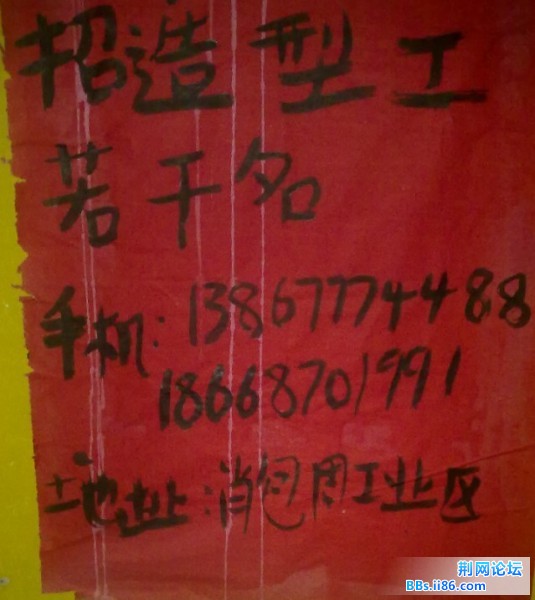 招造型工
若干名
手机:13867774488
18668701991
地址:消包周工业区
荆网论坛
BBs.ii86.com